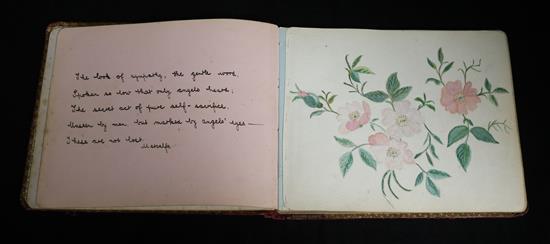 The look of sympathy, the gentle word,
Spoken so low that only angels heard;
The secret act of pure self-sacrifice,
Unseen by men, but marked by angels' eyes—
These are not lost.
Metcalfe